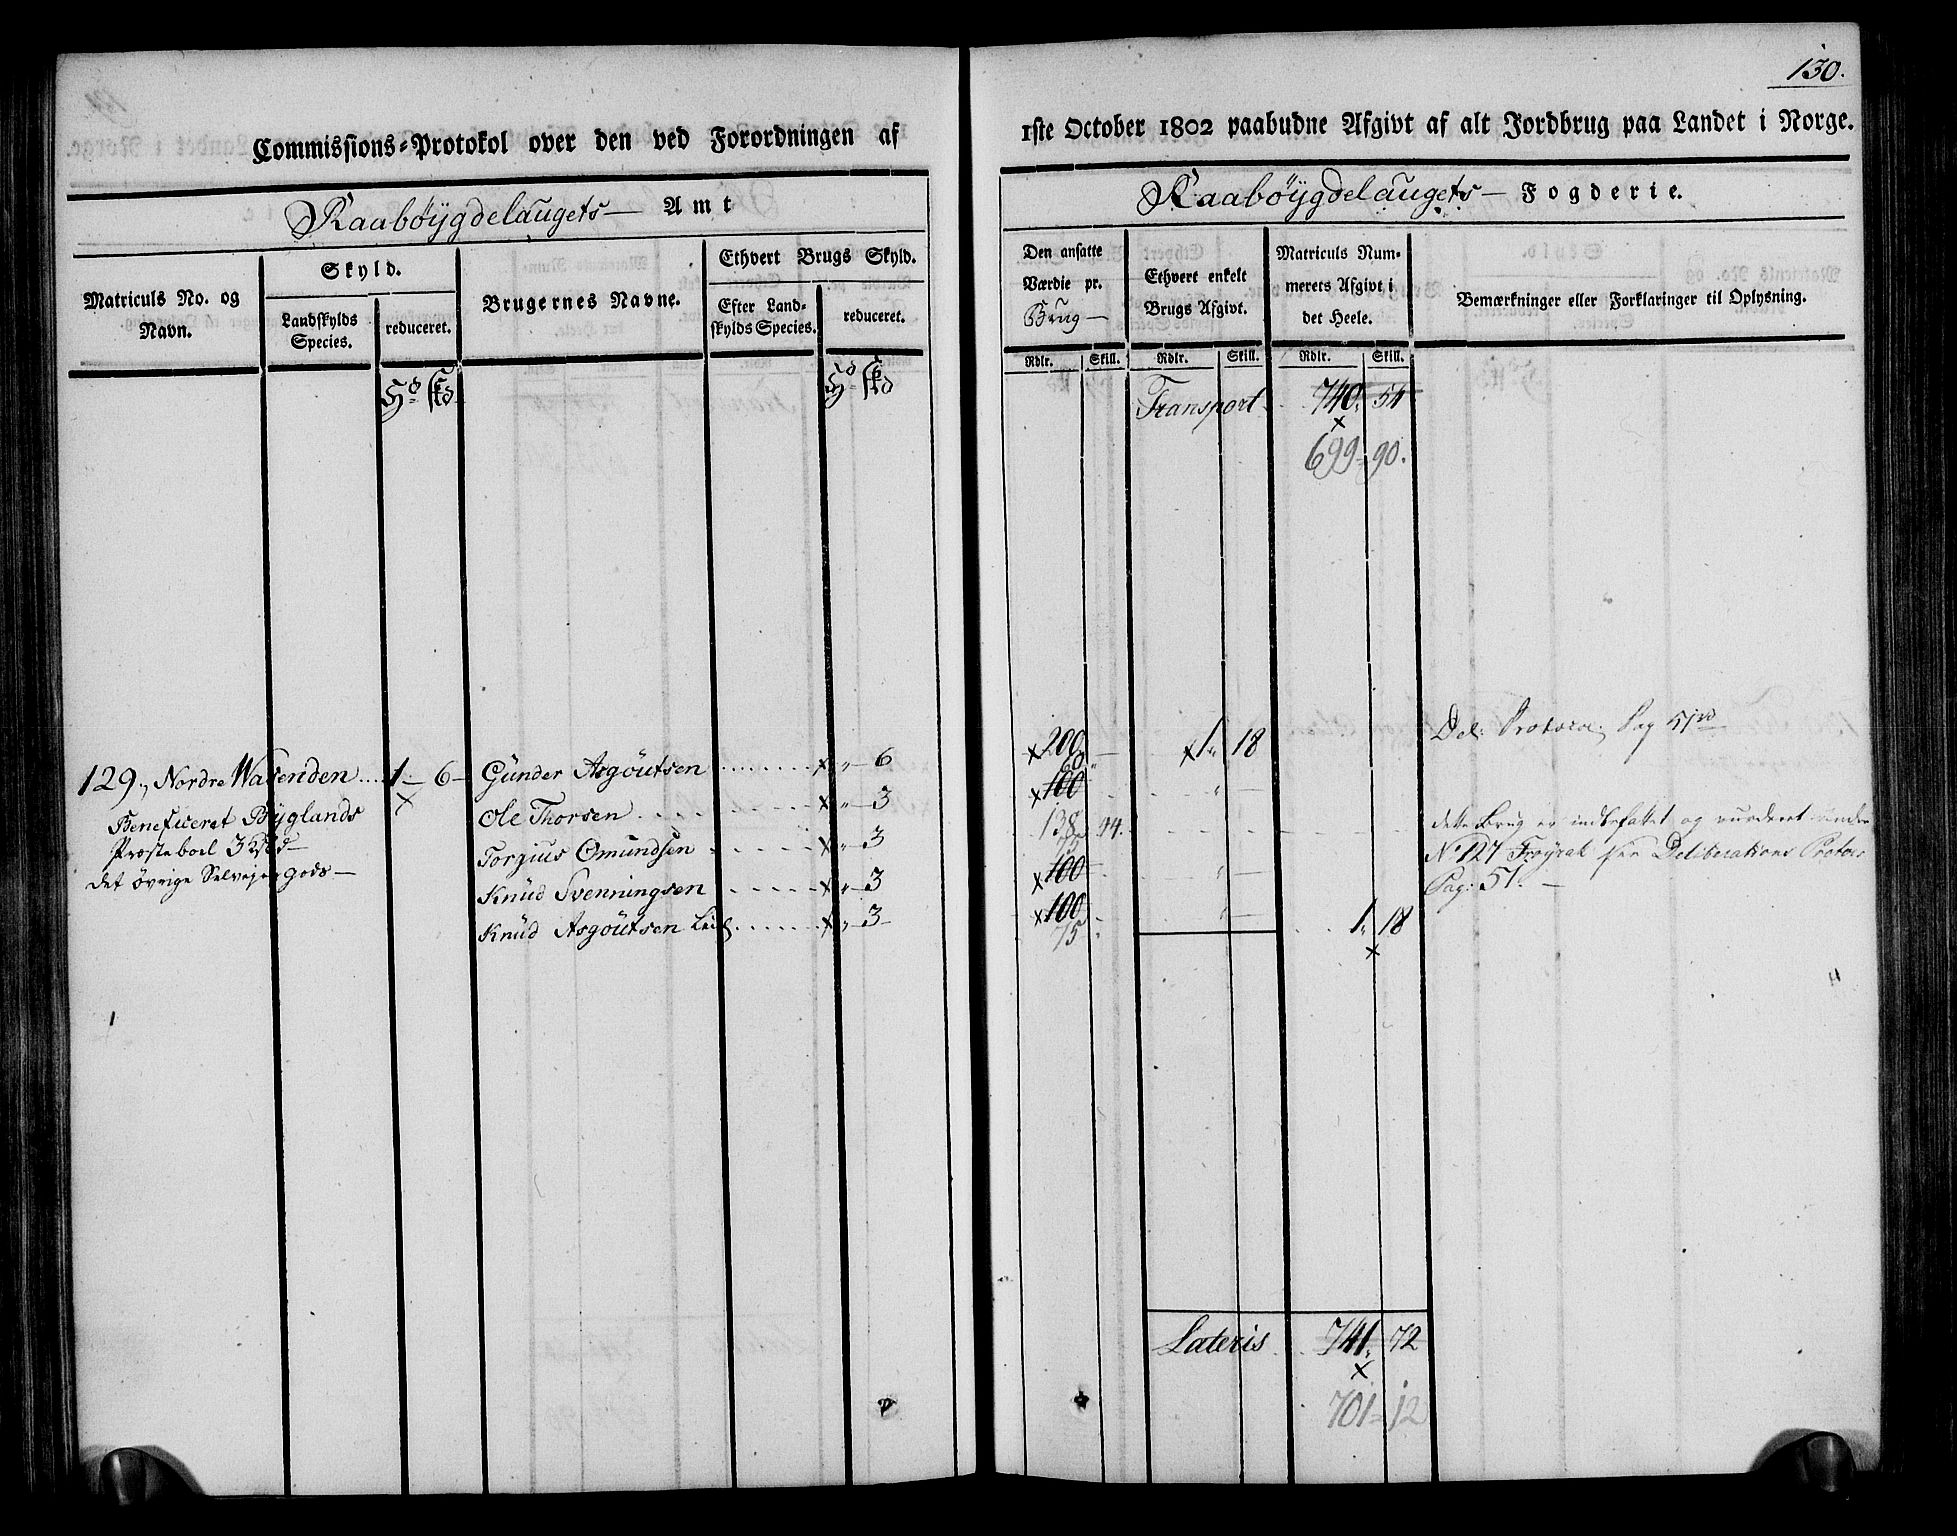 130.
Commissions-Protokol over den ved Forordningen af
1ste October 1802 paabudne Afgivt af alt Jordbrug paa Landet i Norge.
Raabøygdelaugets — Amt
Raabøygdelaugets — Fogderie.
Matriculs No. og Navn.
Skyld.
Landskylds Species.
reduceret.
Brugernes Navne.
Ethvert Brugs Skyld.
Efter Landskylds Species.
reduceret.
Den ansatte Værdie pr. Brug —
Ethvert enkelt Brugs Afgivt.
Matriculs Nummerets Afgivt i det Heele.
Bemærkninger eller Forklaringer til Oplysning.
Rdlr. Skill. Rdlr. Skill. Rdlr. Skill.
Hd Skd Hd Skd
Transport 740. 54
x
699 90.
Del: Protocol Pag 51
129., Nordre Wasenden .... 1 — 6 — Günder Asgöutsen ........ x „ — 6 x 200 — x 1. 18
60
Beneficeret Byglands x Ole Thorsen ........ x „ — 3 x 100 „ —
Præsteboel 3 Torgius Omundsen ........ x „ — 3 138 94. dette Brug er indbefattet og vurderet under
75 No 127 Frøyrak per Deliberations Protoc
det övrige Selvejer gods — Knüd Svenningsen ..... x „ — 3 x 100 „ — Pag: 51. —
Knüd Asgöutsen ...... x „ — 3 x 100 „ — 1. 18
75 x
Lateris 741. 72
x
701 12